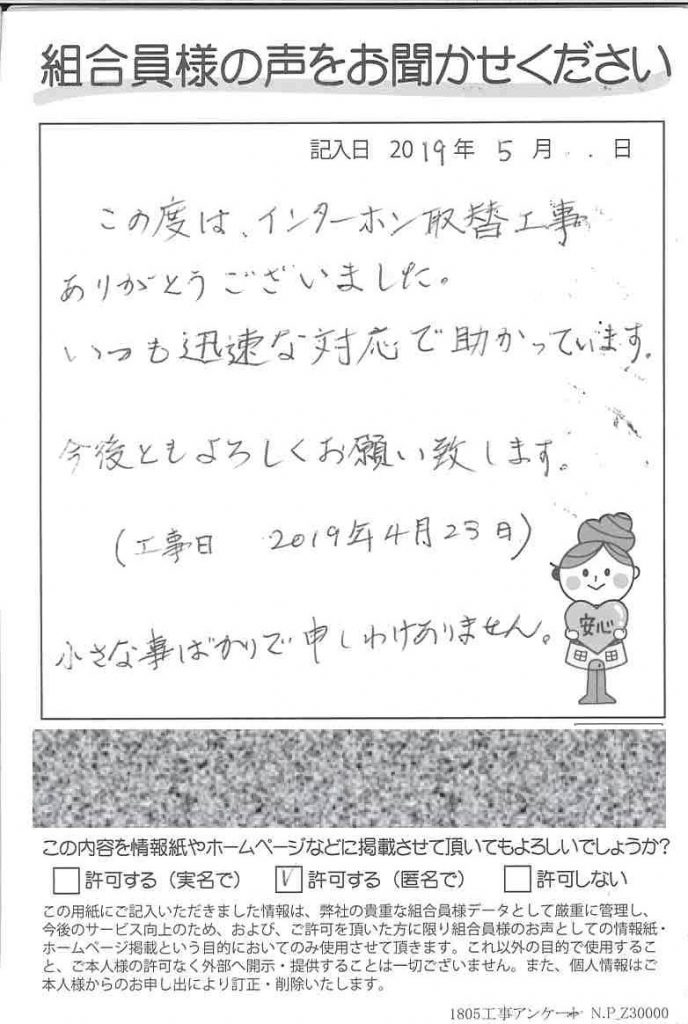 組合員様の声をお聞かせください
記入日 2019年 5月 . . 日
この度は、インターホン取替工事
ありがとうございました。
いつも迅速な対応で助かっています。
今後ともよろしくお願い致します。
(工事日 2019年4月23日)
小さな事ばかりで申しわけありません。
安心
この内容を情報紙やホームページなどに掲載させて頂いてもよろしいでしょうか?
許可する(実名で) 許可する(匿名で) 許可しない
この用紙にご記入いただきました情報は、弊社の貴重な組合員様データとして厳重に管理し、
今後のサービス向上のため、および、ご許可を頂いた方に限り組合員様のお声としての情報紙・
ホームページ掲載という目的においてのみ使用させて頂きます。これ以外の目的で使用するこ
と、ご本人様の許可なく外部へ開示・提供することは一切ございません。また、個人情報はご
本人様からのお申し出により訂正・削除いたします。
1805工事アンケート N.P_Z30000